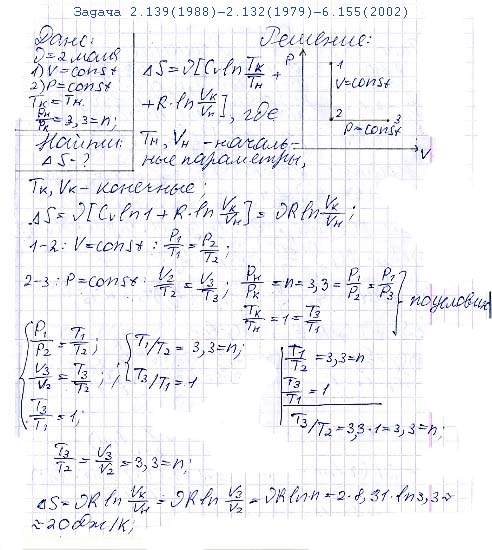 Задача 2.139(1988)-2.132(1979)-6.155(2002)
Дано:
ϑ=2 моля
1) V=const
2) P=const
Tк=Tн
Pн/Pк=3,3=n;
Найти:
ΔS-?
Решение:
ΔS=ϑ[Cv ln Tк/Tн +
+R·ln Vк/Vн], где
Tн, Vн - началь-
ные параметры,
P
1
V=const
2
3
P=const
V
Tк, Vк - конечные;
ΔS=ϑ[Cv ln1 + R·ln Vк/Vн] = ϑR ln Vк/Vн;
1-2: V=const : P1/T1 = P2/T2;
2-3: P=const : V2/T2 = V3/T3; Pн/Pк = n = 3,3 = P1/P2 = P1/P3
Tк/Tн = 1 = T3/T1
- по условию
P1/P2 = T1/T2;
V3/V2 = T3/T2;
T3/T1 = 1;
T1/T2 = 3,3=n;
T3/T1 = 1
T1/T2 = 3,3=n
T3/T1 = 1
T3/T2 = 3,3·1 = 3,3=n;
T3/T2 = V3/V2 = 3,3=n;
ΔS=ϑR ln Vк/Vн = ϑR ln V3/V2 = ϑR ln n = 2·8,31·ln3,3≈
≈20 Дж/К;